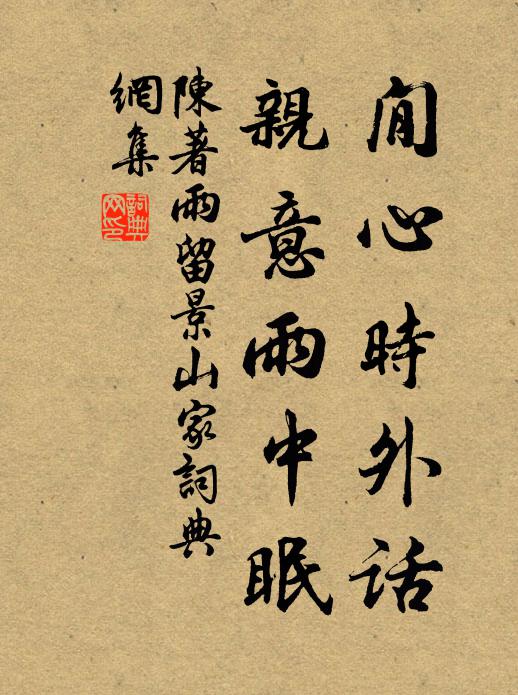 閒心時外話
親意雨中眠
陳著雨留景山家詞典
網集
詞典網印